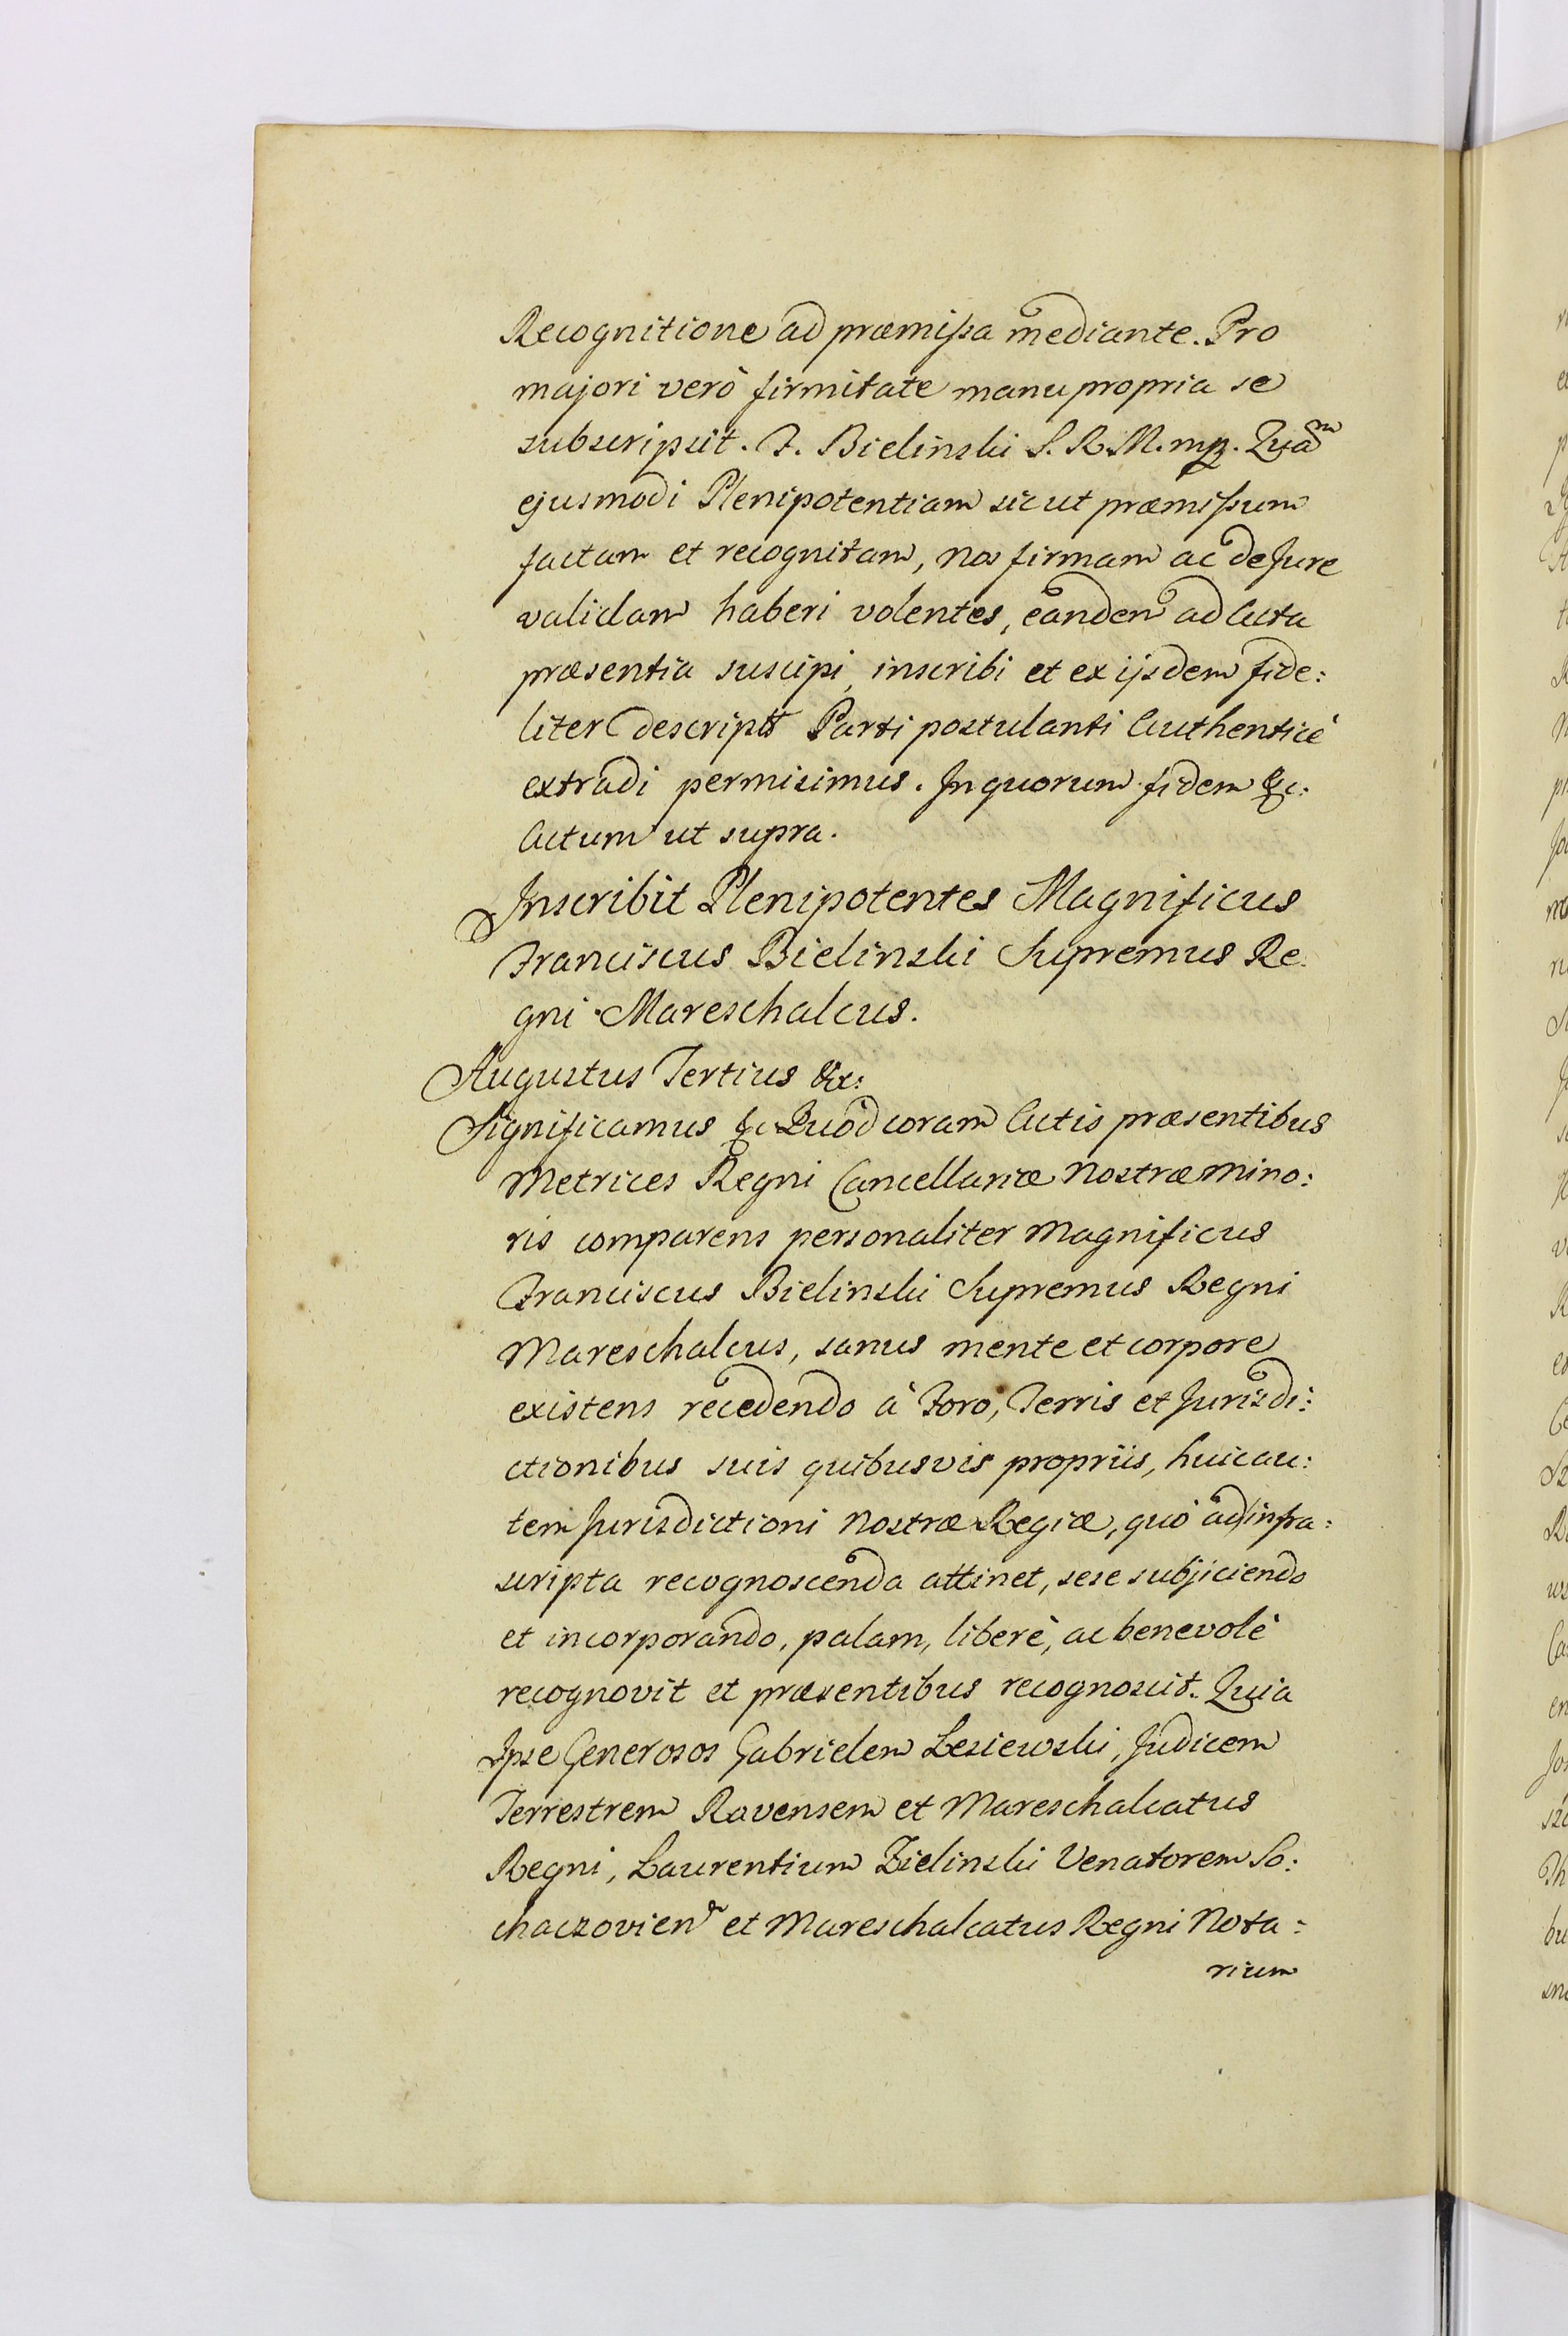 Recognitione ad præmissa mediante. Pro
majori verò firmitate manu propria se
subscripsit. F. Bielinski S. R. M. mp. Quam
ejusmodi Plenipotentiam sicut præmissum
factam et recognitam, nos firmam ac de Jure
validam haberi volentes, eandem ad Acta
præsentia suscipi, inscribi et ex ijsdem fide:
liter descriptã Parti postulanti Authenticè
extradi permisimus. In quorum fidem &c:
Actum ut supra.
Inscribit Plenipotentes Magnificus
Franciscus Bielinski Supremus Re:
gni Mareschalcus.
Augustus Tertius &c:
Significamus &c Quod coram Actis præsentibus
Metrices Regni Cancellariæ Nostræ Mino:
ris comparens personaliter Magnificus
Franciscus Bielinski Supremus Regni
Mareschalcus, sanus mente et corpore
existens recedendo à Foro, Terris et Jurisdi:
ctionibus suis quibusvis propriis, huic au:
tem Jurisdictioni Nostræ Regiæ, quò ad infra:
scripta recognoscenda attinet, sese subjiciendo
et incorporando, palam, liberè, ac benevolè
recognovit et præsentibus recognoscit. Quia
Ipse Generosos Gabrielem Lesiewski, Judicem
Terrestrem Ravensem et Mareschalcatus
Regni, Laurentium Zielinski Venatorem So:
chaczovien et Mareschalcatus Regni Nota:
rium